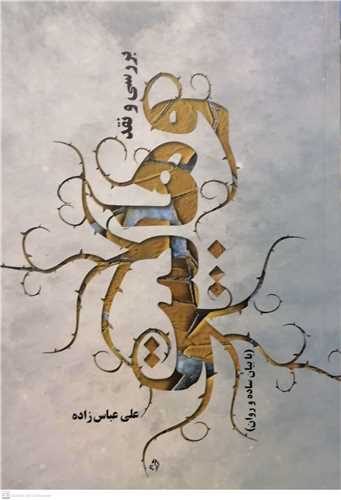 بررسی و نقد
وهابیت
(با بیان ساده و روان)
علی عباس زاده